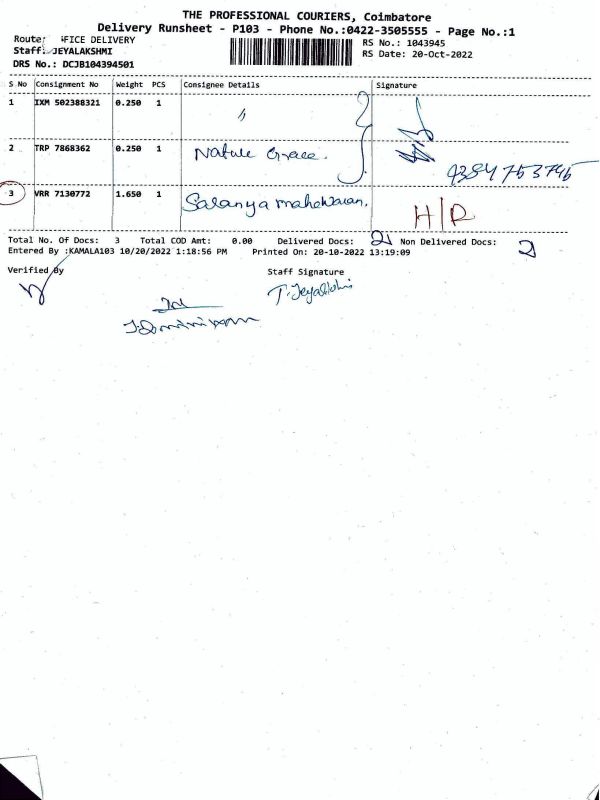 THE PROFESSIONAL COURIERS, Coimbatore
Delivery Runsheet - P103 - Phone No.:0422-3505555 - Page No.:1
Route: FFICE DELIVERY
RS No.: 1043945
Staff: JEYALAKSHMI
RS Date: 20-Oct-2022
DRS No.: DCJB104394501
S No Consignment No Weight PCS Consignee Details Signature
1 IXM 502388321 0.250 1 〃
2 TRP 7868362 0.250 1 Nature Grace.
9384753745
3 VRR 7130772 1.650 1 Saranya mahewaran.
H/D
Total No. Of Docs: 3 Total COD Amt: 0.00 Delivered Docs: 2 Non Delivered Docs: 2
Entered By :KAMALA103 10/20/2022 1:18:56 PM Printed On: 20-10-2022 13:19:09
Verified By Staff Signature
T. Jeyalakshmi